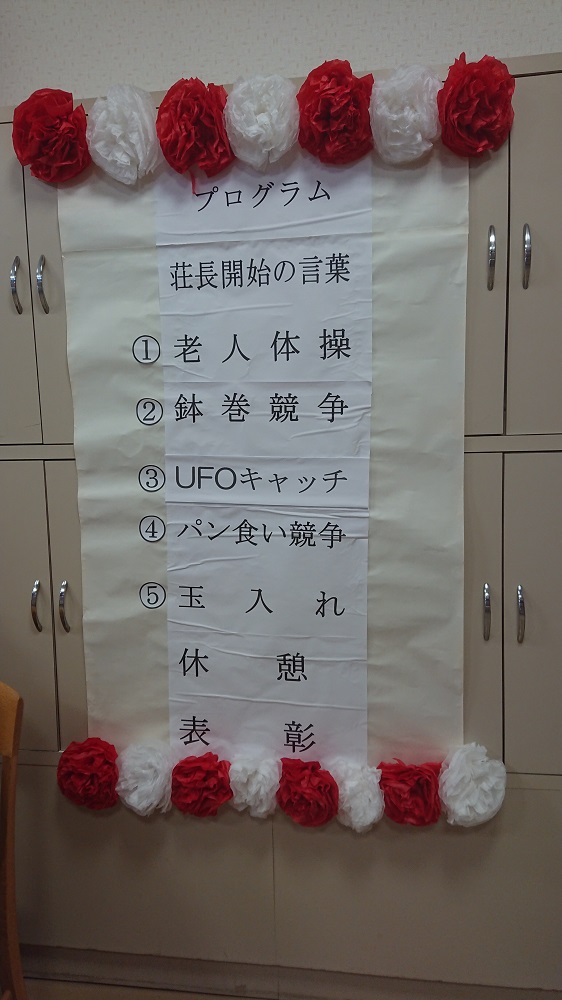 プログラム
荘長開始の言葉
①老人体操
②鉢巻競争
③UFOキャッチ
④パン食い競争
⑤玉入れ
休憩
表彰